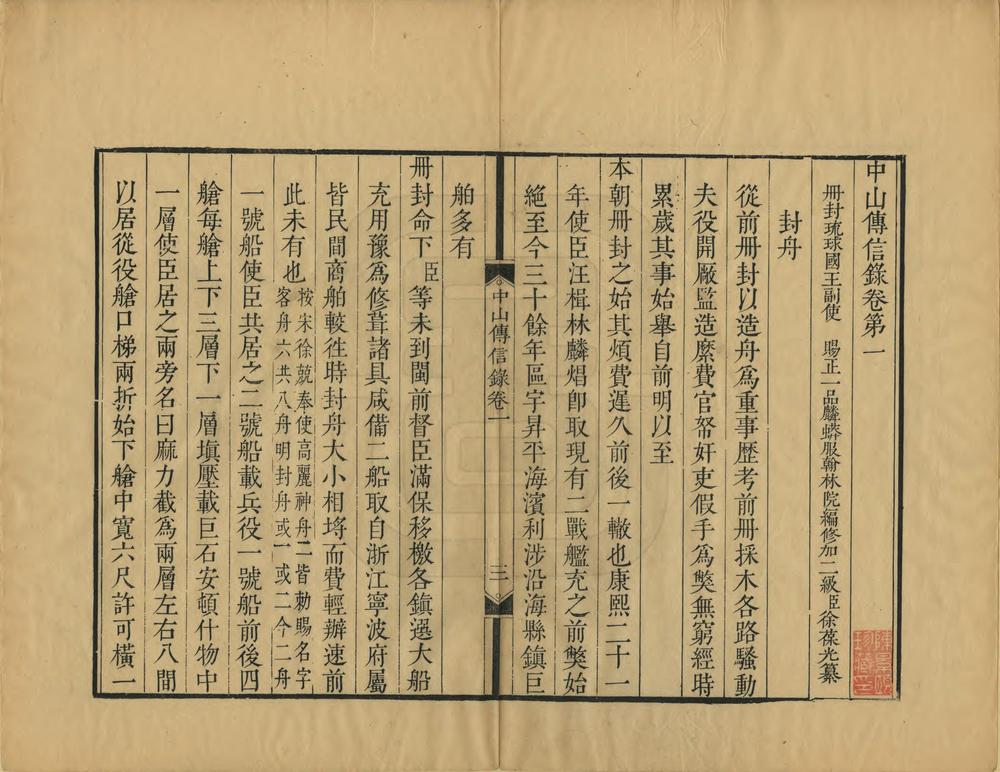 中山傳信錄卷第一
冊封琉球國王副使 賜正一品麟蟒服翰林院編修加二級臣徐葆光纂
封舟
從前冊封以造舟爲重事歷考前冊採木各路騷動
夫役開厰監造縻費官帑奸吏假手爲獘無窮經時
累歲其事始舉自前明以至
本朝冊封之始其煩費遲久前後一轍也康熙二十一
年使臣汪楫林麟焻卽取現有二戰艦充之前獘始
絕至今三十餘年區宇昇平海濱利涉沿海縣鎮巨
舶多有
中山傳信錄卷一
三
冊封命下臣等未到閩前督臣滿保移檄各鎮選大船
充用豫爲修葺諸具咸備二船取自浙江寧波府屬
皆民間商舶較徃時封舟大小相埒而費輕辦速前
此未有也按宋徐兢奉使高麗神舟二皆勅賜名字
客舟六共八舟明封舟或一或二今二舟
一號船使臣共居之二號船載兵役一號船前後四
艙每艙上下三層下一層塡壓載巨石安頓什物中
一層使臣居之兩旁名曰麻力截爲兩層左右八間
以居從役艙口梯兩折始下艙中寬六尺許可橫一